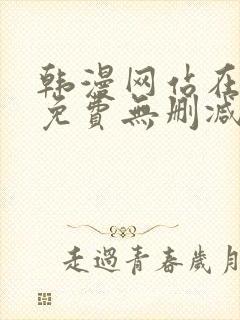 韩漫网站在
免費無刪减
走過青春歲月